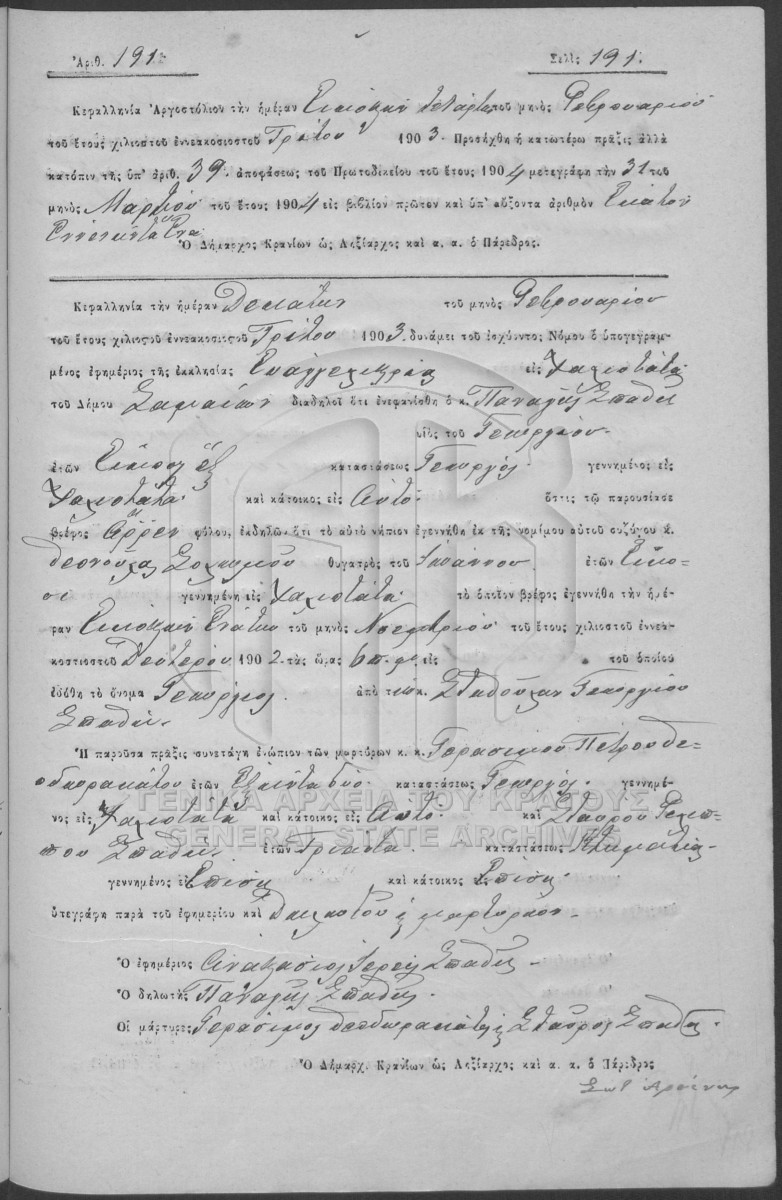 Ἀριθ. 191. Σελὶς 191.
Κεφαλληνία Ἀργοστόλιον τὴν ἡμέραν Εἰκοστὴν τετάρτην τοῦ μηνὸς Φεβρουαρίου
τοῦ ἔτους χιλιοστοῦ ἐννεακοσιοστοῦ Τρίτου 1903. Προσήχθη ἡ κατωτέρω πρᾶξις ἀλλὰ
κατόπιν τῆς ὑπ' ἀριθ. 39. ἀποφάσεως τοῦ Πρωτοδικείου τοῦ ἔτους 1904 μετεγράφη τὴν 31 τοῦ
μηνὸς Μαρτίου τοῦ ἔτους 1904 εἰς βιβλίον πρῶτον καὶ ὑπ' αὔξοντα ἀριθμὸν Ἑκατὸν
Ἐννενῆντα Ἕνα
Ὁ Δήμαρχος Κρανίων ὡς Ληξίαρχος καὶ α. α. ὁ Πάρεδρος.
Κεφαλληνία τὴν ἡμέραν Δεκάτην τοῦ μηνὸς Φεβρουαρίου
τοῦ ἔτους χιλιοστοῦ ἐννεακοσιοστοῦ Τρίτου 1903. δυνάμει τοῦ ἰσχύοντος Νόμου ὁ ὑπογεγραμ-
μένος ἐφημέριος τῆς ἐκκλησίας Εὐαγγελιστρίας εἰς Χαλιωτάτα
τοῦ Δήμου Σαμαίων διαδηλοῖ ὅτι ἐνεφανίσθη ὁ κ. Παναγῆς Σπαθῆς
υἱὸς τοῦ Γεωργίου
ἐτῶν Εἴκοσι ἓξ καταστάσεως Γεωργὸς γεννημένος εἰς
Χαλιωτάτα καὶ κάτοικος εἰς Αὐτό. ὅστις τῷ παρουσίασε
βρέφος ἄρρεν φύλου, ἐκδηλῶν ὅτι τὸ αὐτὸ νήπιον ἐγεννήθη ἐκ τῆς νομίμου αὐτοῦ συζύγου κ.
θυγατρὸς τοῦ Ἰωάννου ἐτῶν Εἴκο-
σι γεννημένη εἰς Χαλιωτάτα τὸ ὁποῖον βρέφος ἐγεννήθη τὴν ἡμέ-
ραν Εἰκοστὴν Ἐνάτην τοῦ μηνὸς Νοεμβρίου τοῦ ἔτους χιλιοστοῦ ἐννεα-
κοσιοστοῦ Δευτέρου 1902. τὰς ὥρας 6 π.μ. εἰς τοῦ ὁποίου
ἐδόθη τὸ ὄνομα Γεώργιος. ἀπὸ τὴν κ. Σταθούλαν Γεωργίου
Σπαθῆ.
Ἡ παροῦσα πρᾶξις συνετάγη ἐνώπιον τῶν μαρτύρων κ. κ. Γερασίμου Πέτρου Θε-
οδωρακάτου ἐτῶν Ἑξῆντα δύο. καταστάσεως Γεωργὸς γεννημέ-
νος εἰς Χαλιωτάτα καὶ κάτοικος εἰς Αὐτό. καὶ Σταύρου Φιλίπ-
που Σπαθῆ. ἐτῶν Τριάντα. καταστάσεως Κτηματίας
γεννημένος εἰς Ἐπίσης καὶ κάτοικος εἰς Ἐπίσης.
ὑπεγράφη παρὰ τοῦ ἐφημερίου καὶ Δηλωτοῦ κ μαρτύρων.
Ὁ ἐφημέριος Ἀναστάσιος Ἱερεὺς Σπαθῆς
Ὁ δηλωτὴς Παναγῆς Σπαθῆς.
Οἱ μάρτυρες Γεράσιμος Θεοδωρακάτος κ Σταῦρος Σπαθῆς.
Ὁ Δήμαρχ. Κρανίων ὡς Ληξίαρχος καὶ α. α. ὁ Πάρεδρος
ΓΕΝΙΚΑ ΑΡΧΕΙΑ ΤΟΥ ΚΡΑΤΟΥΣ
GENERAL STATE ARCHIVES